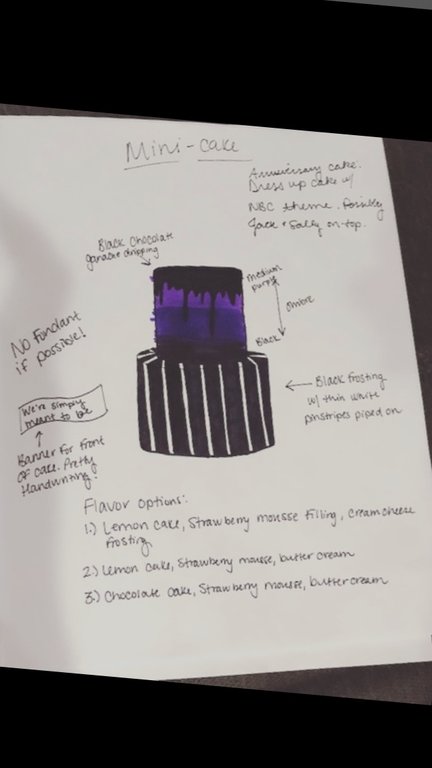 Mini-cake
Anniversary cake.
Dress up cake w/
NBC theme. Possibly
Jack + Sally on top.
Black Chocolate
ganache dripping
medium
purple
ombre
Black
No Fondant
if possible!
Black frosting
w/ thin white
pinstripes piped on
We're simply
meant to be
Banner for front
of cake. Pretty
Handwriting!
Flavor options:
1.) Lemon cake, Strawberry mousse filling, cream cheese
frosting
2.) Lemon cake, Strawberry mousse, butter cream
3.) Chocolate cake, Strawberry mousse, butter cream